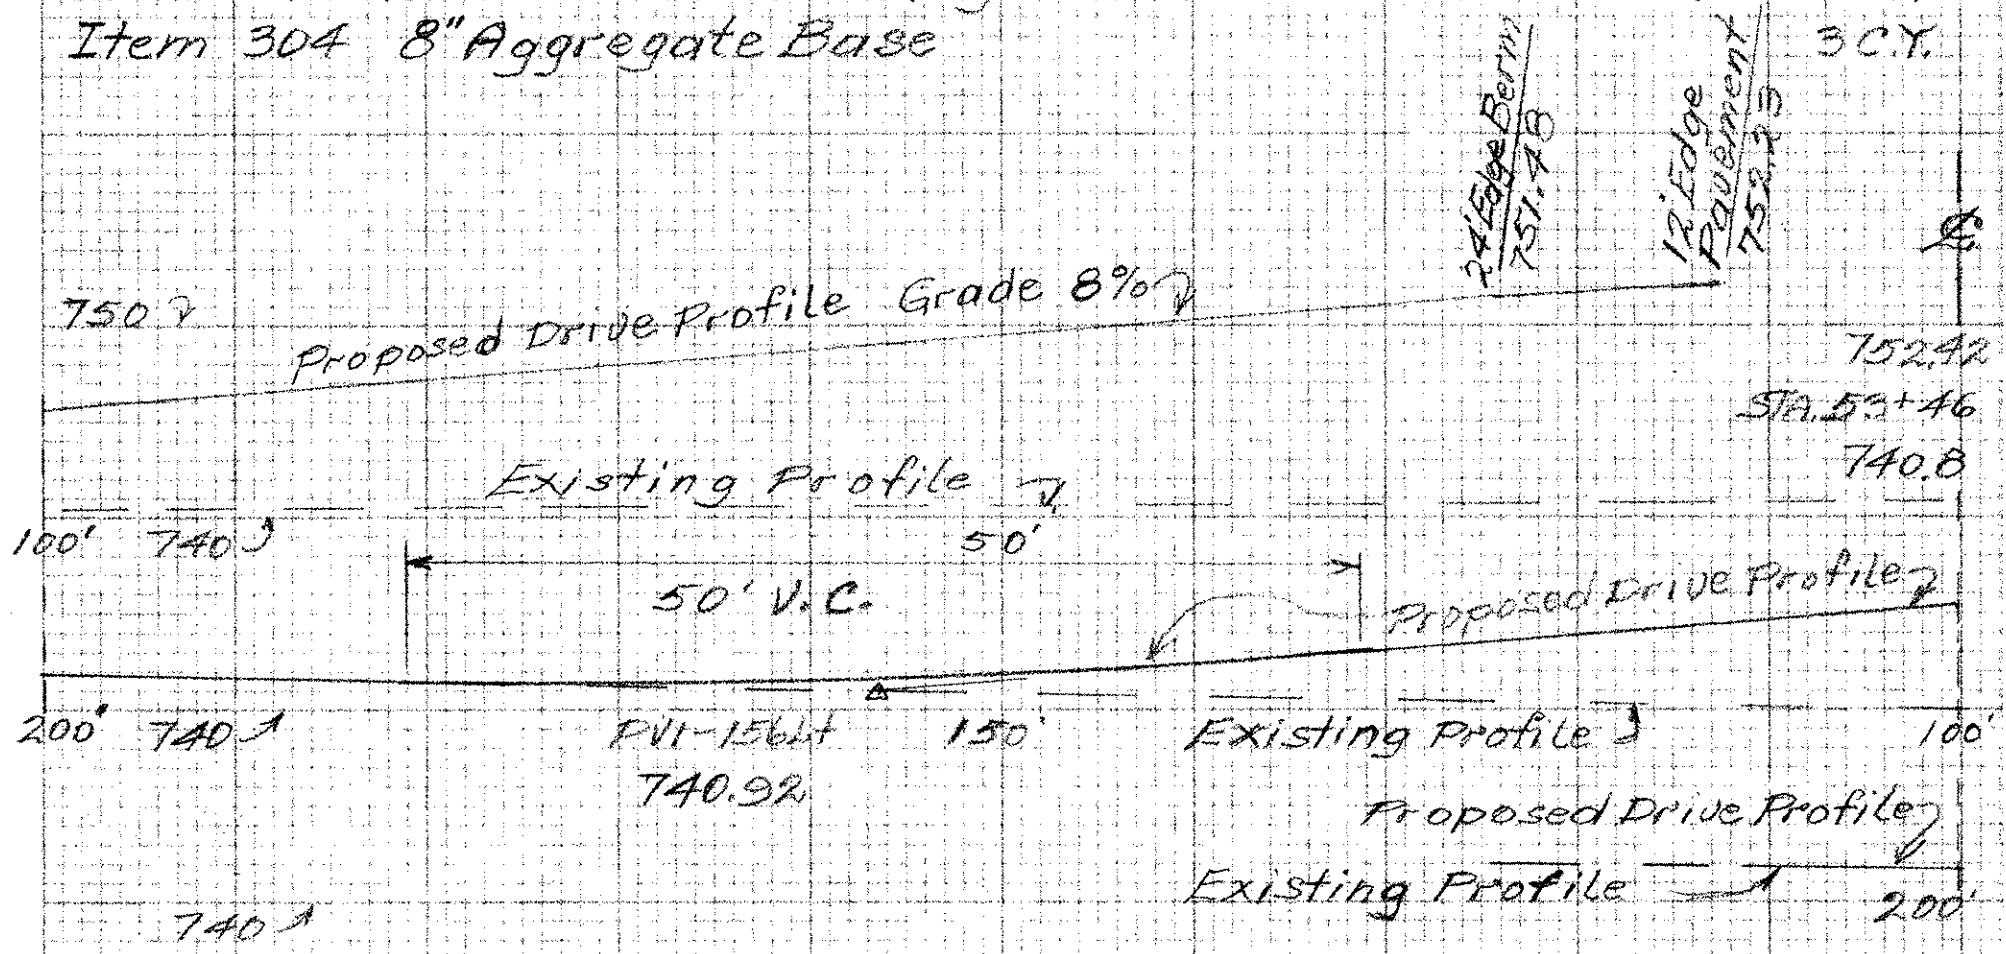 Item 304 8" Aggregate Base
3 C.Y.
24' Edge Berm
751.48
12' Edge
Pavement
752.23
℄
750
Proposed Drive Profile Grade 8%
752.42
STA. 53+46
740.8
Existing Profile
100' 740
50'
50' V.C.
Proposed Drive Profile
200' 740
PVI-156Lt
740.92
150'
Existing Profile
100'
Proposed Drive Profile
Existing Profile
200'
740